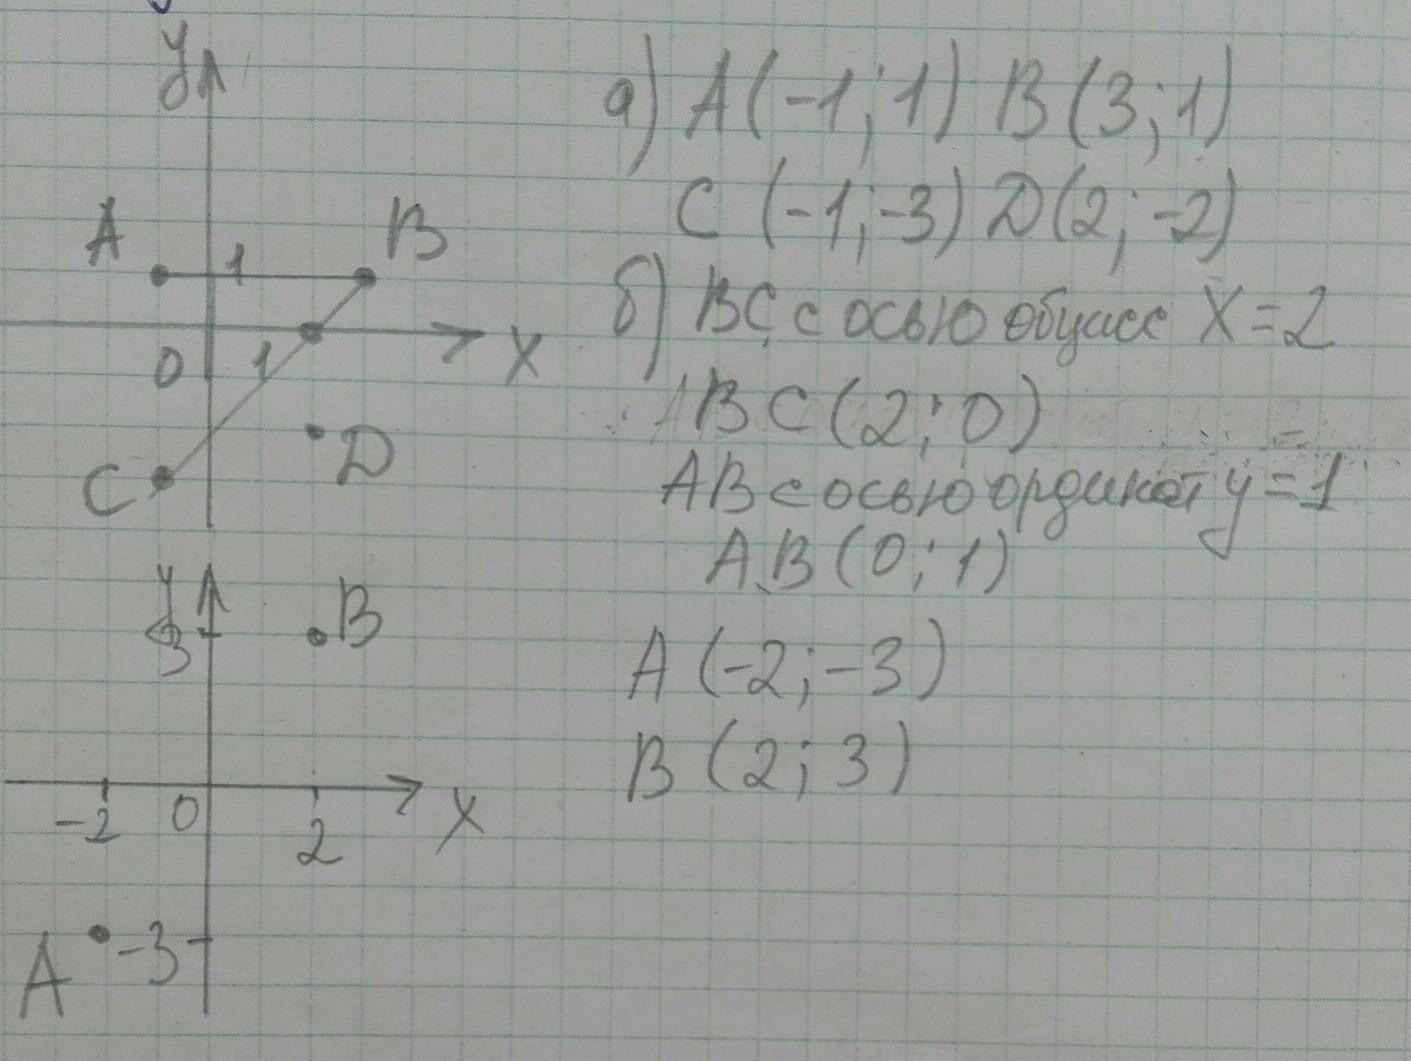 y
а) A(-1; 1) B(3; 1)
C (-1; -3) D(2; -2)
A 1 B
0 1 X
б) BC с осью абцисс X=2
BC(2; 0)
C D
AB с осью ординат y=1
AB(0; 1)
y B
3
A(-2; -3)
B(2; 3)
-2 0 2 X
A -3